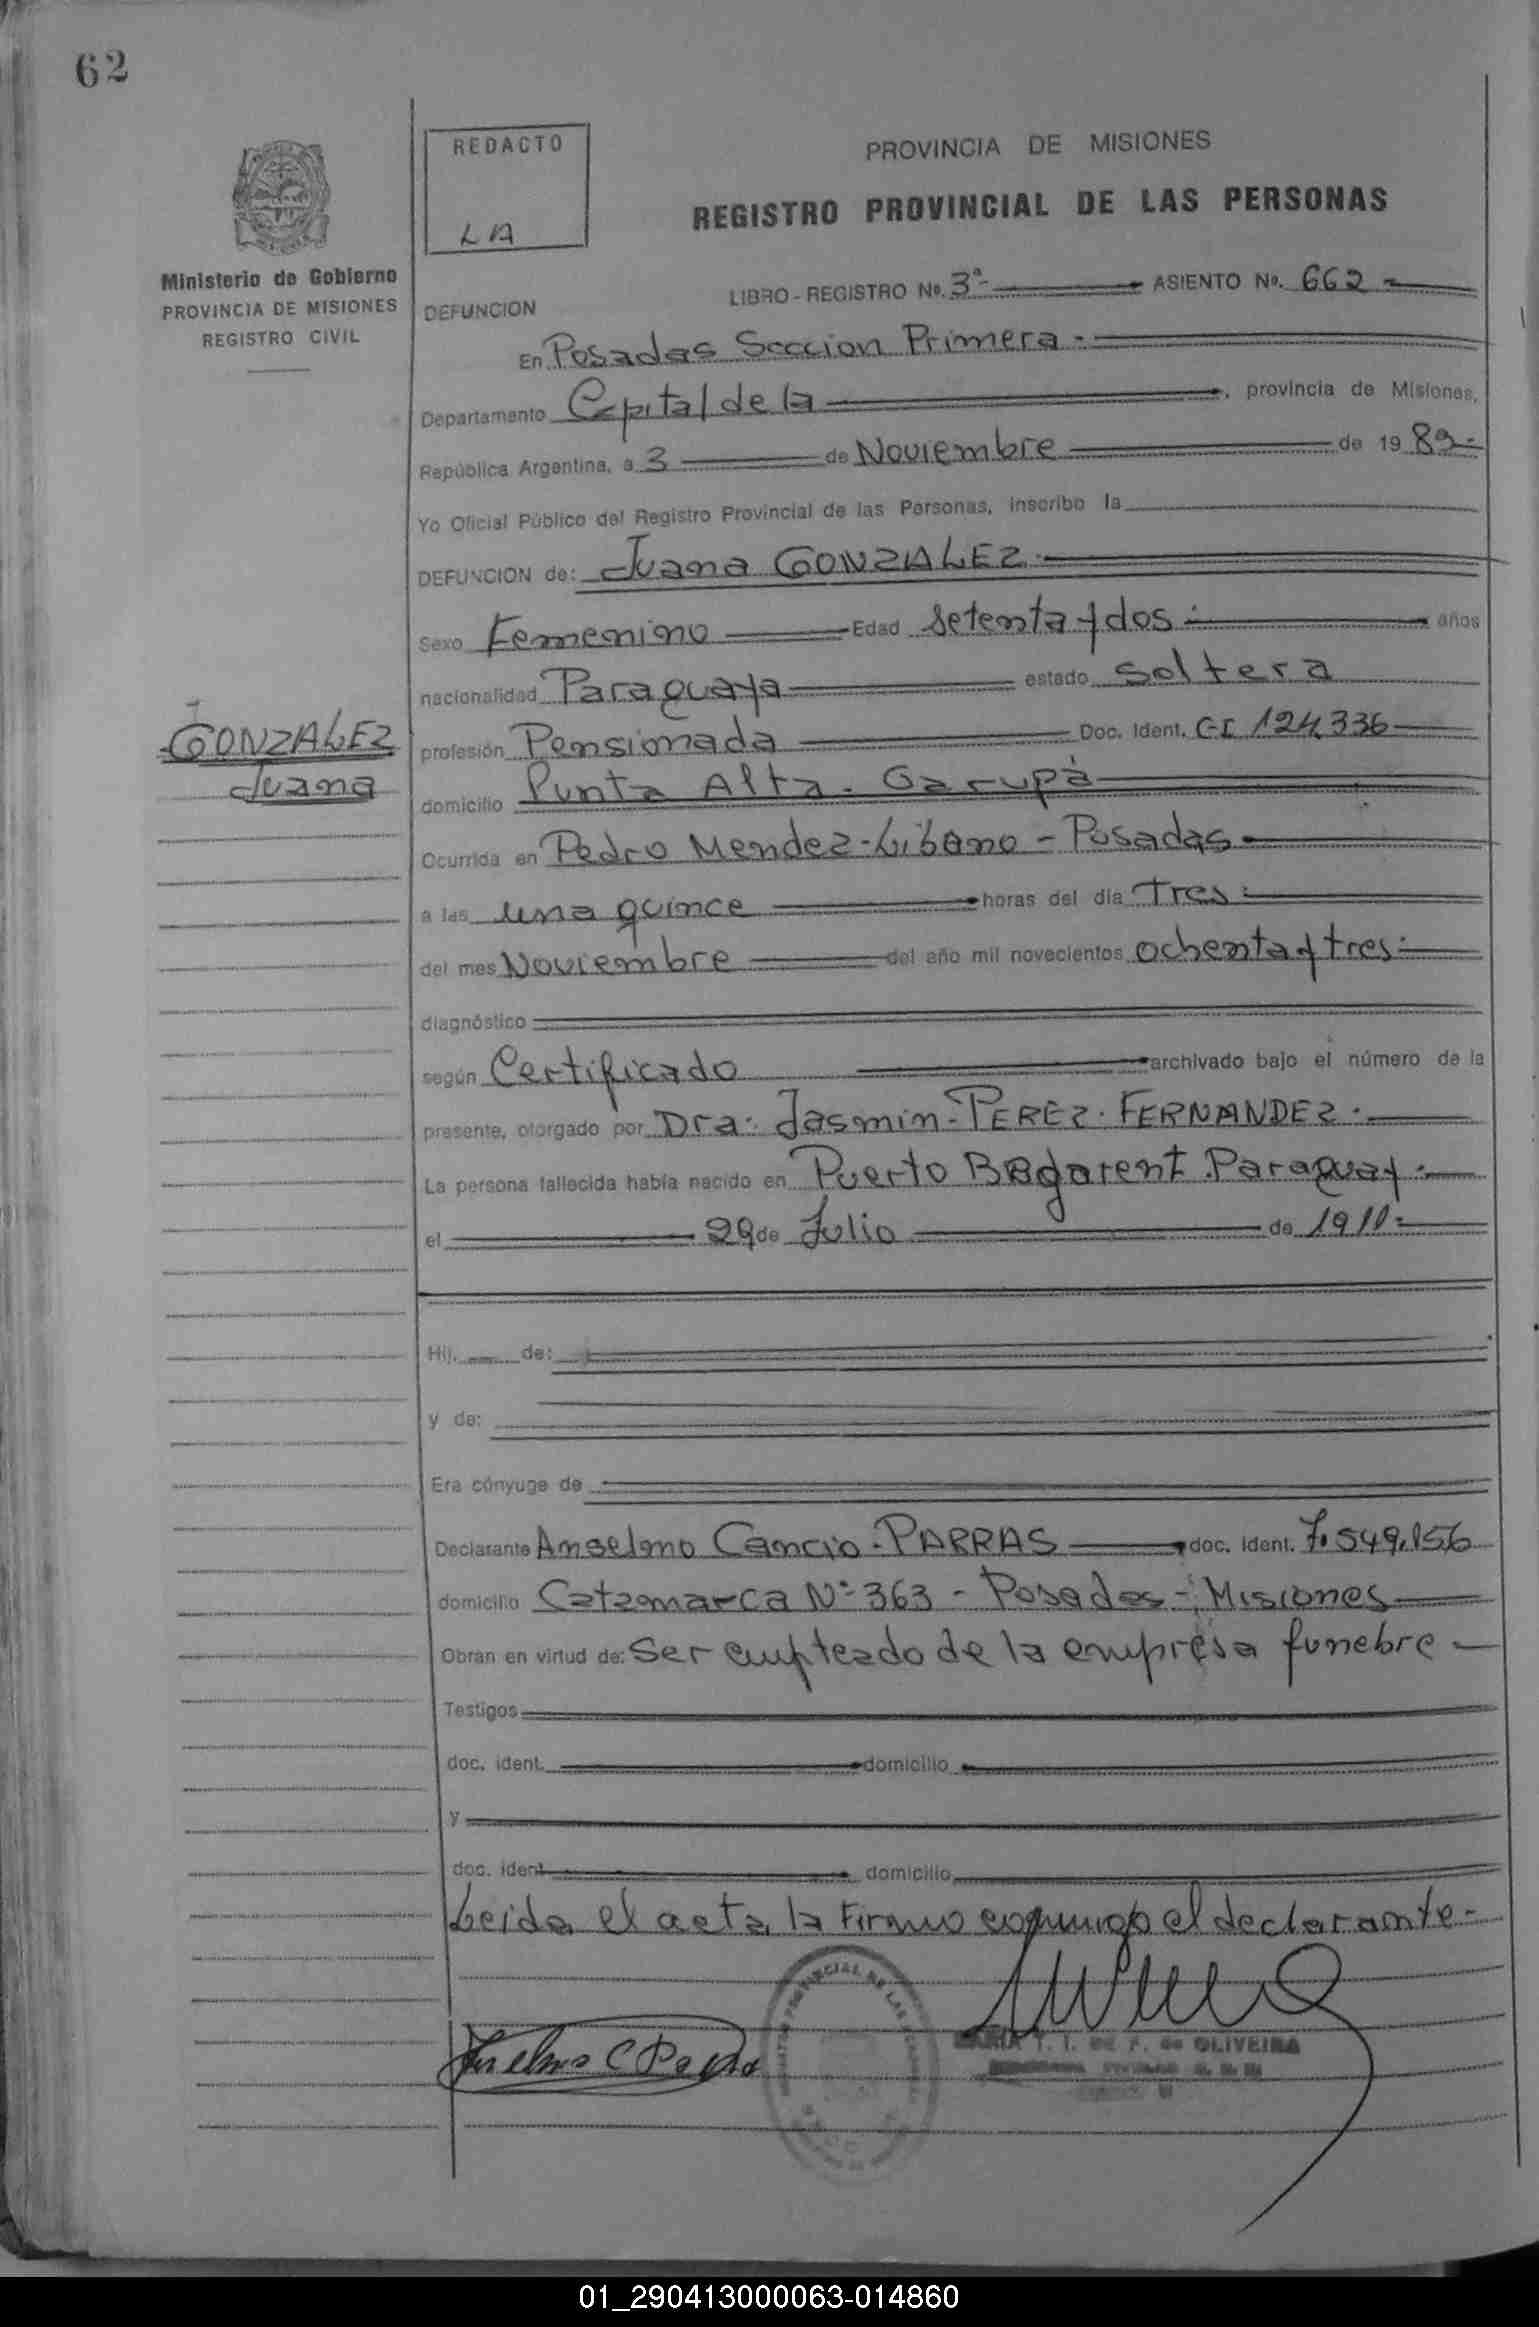 62
REDACTO
LA
PROVINCIA DE MISIONES
REGISTRO PROVINCIAL DE LAS PERSONAS
Ministerio de Gobierno
PROVINCIA DE MISIONES
REGISTRO CIVIL
LIBRO - REGISTRO No. 3a- ASIENTO No. 662-
DEFUNCION
En Posadas Seccion Primera -
Departamento Capital de la , provincia de Misiones,
República Argentina, a 3 de Noviembre de 19 83-
Yo Oficial Público del Registro Provincial de las Personas, inscribo la
DEFUNCION de: Juana GONZALEZ-
Sexo Femenino Edad Setenta y dos- años
nacionalidad Paraguaya estado Soltera
GONZALEZ
Juana
profesión Pensionada Doc. Ident. C-I 124,336
domicilio Punta Alta - Garupá
Ocurrida en Pedro Mendez - Libano - Posadas
a las una quince horas del día Tres-
del mes Noviembre del año mil novecientos ochenta y tres-
diagnóstico
según Certificado archivado bajo el número de la
presente, otorgado por Dra: Jasmin - PEREZ - FERNANDEZ -
La persona fallecida había nacido en Puerto Paraguay -
el 29 de Julio de 1911-
Hij. de:
y de:
Era cónyuge de
Declarante Anselmo Cancio - PARRAS doc. Ident. 7.549.156
domicilio Catamarca N° 363 - Posadas - Misiones
Obran en virtud de: Ser empleado de la empresa funebre -
Testigos
doc. ident. domicilio
y
doc. ident domicilio
Leida el acta, la Firmo conmigo el declarante -
Anselmo C Parras
MARIA T. I. DE F. de OLIVEIRA
01_290413000063-014860